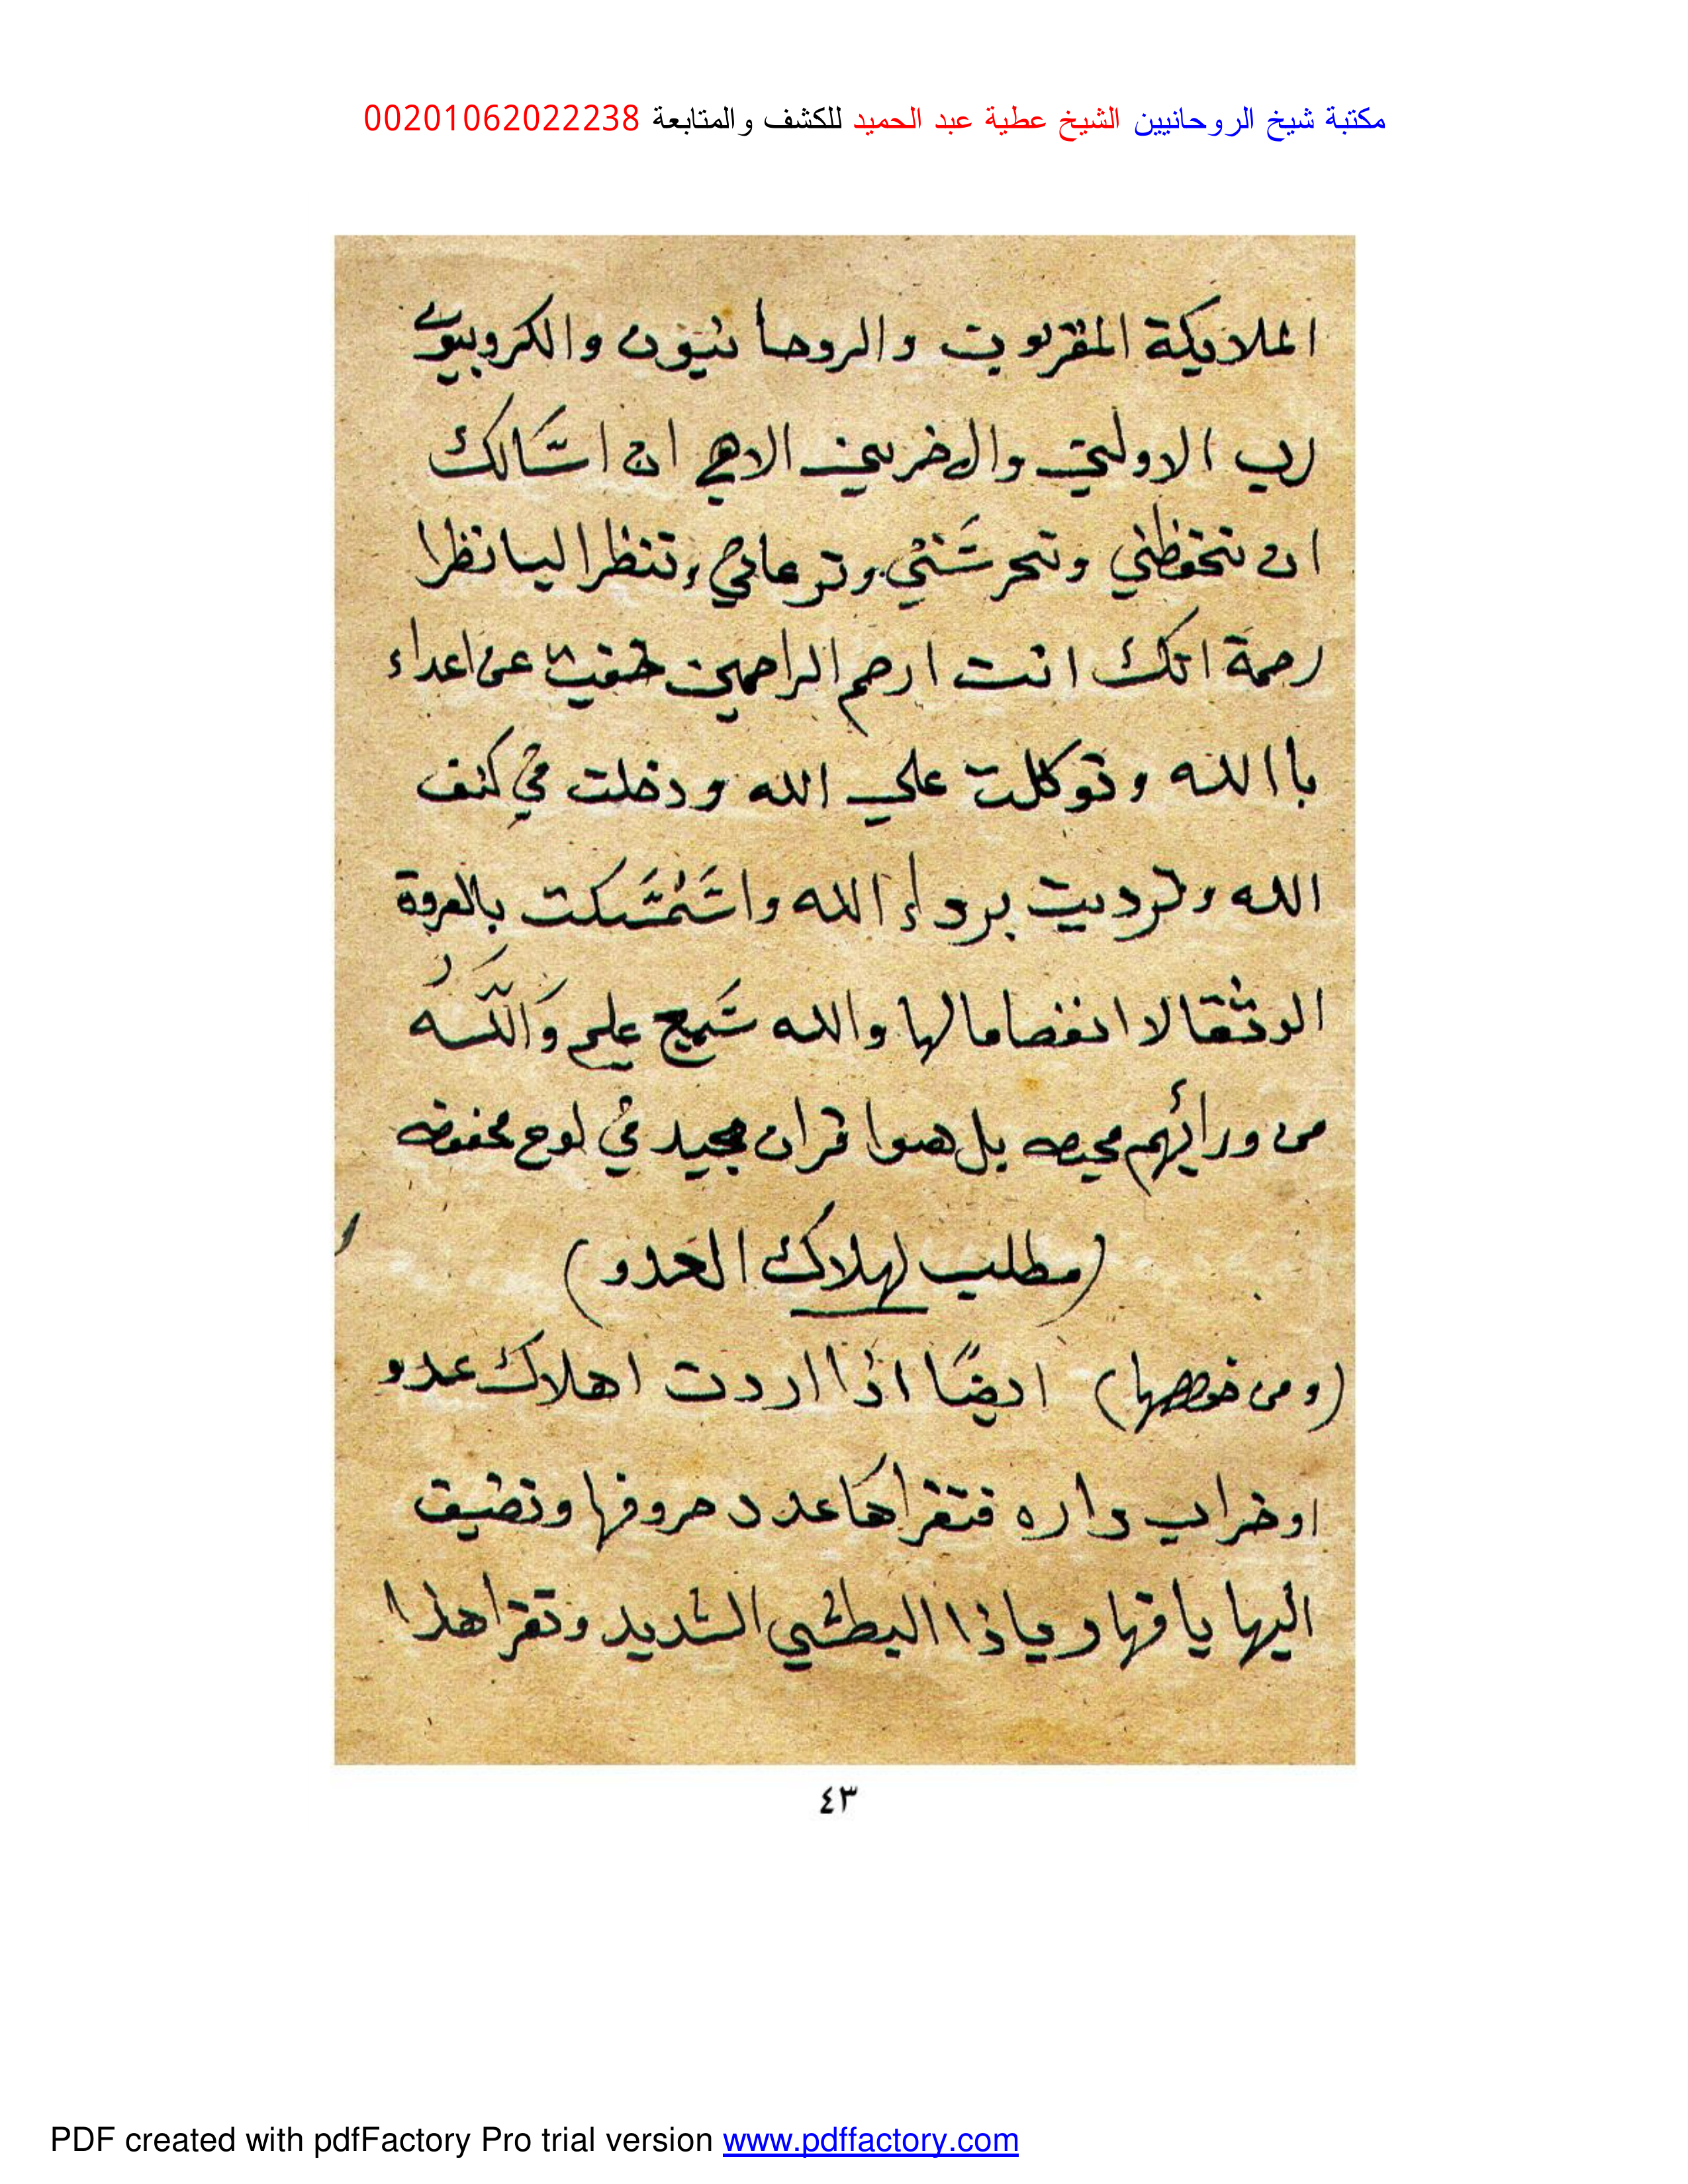 مكتبة شيخ الروحانيين الشيخ عطية عبد الحميد للكشف والمتابعة 00201062022238
الملايكة المقربون والروحانيون والكروبيون
رب الاولين والاخرين الاهي اني اسالك
ان تحفظني وتحرسني وترعاني وتنظر اليا نظرا
رحمة انك انت ارحم الراحمين خفيت عن اعداء
باالله وتوكلت علي الله ودخلت في كنف
الله وترديت برداء الله واستمسكت بالعروة
الوثقا لا انفصاما لها والله سميع عليم والله
من ورائهم محيط بل هوا قران مجيد في لوح محفوظ
(مطلب لهلاك العدو)
(ومن خواصها) ايضًا اذا اردت اهلاك عدو
او خراب داره فتقراها عدد حروفها وتضيق
اليها يا قهار ياذا البطشي الشديد وتقرا هذا
٤٣
PDF created with pdfFactory Pro trial version www.pdffactory.com